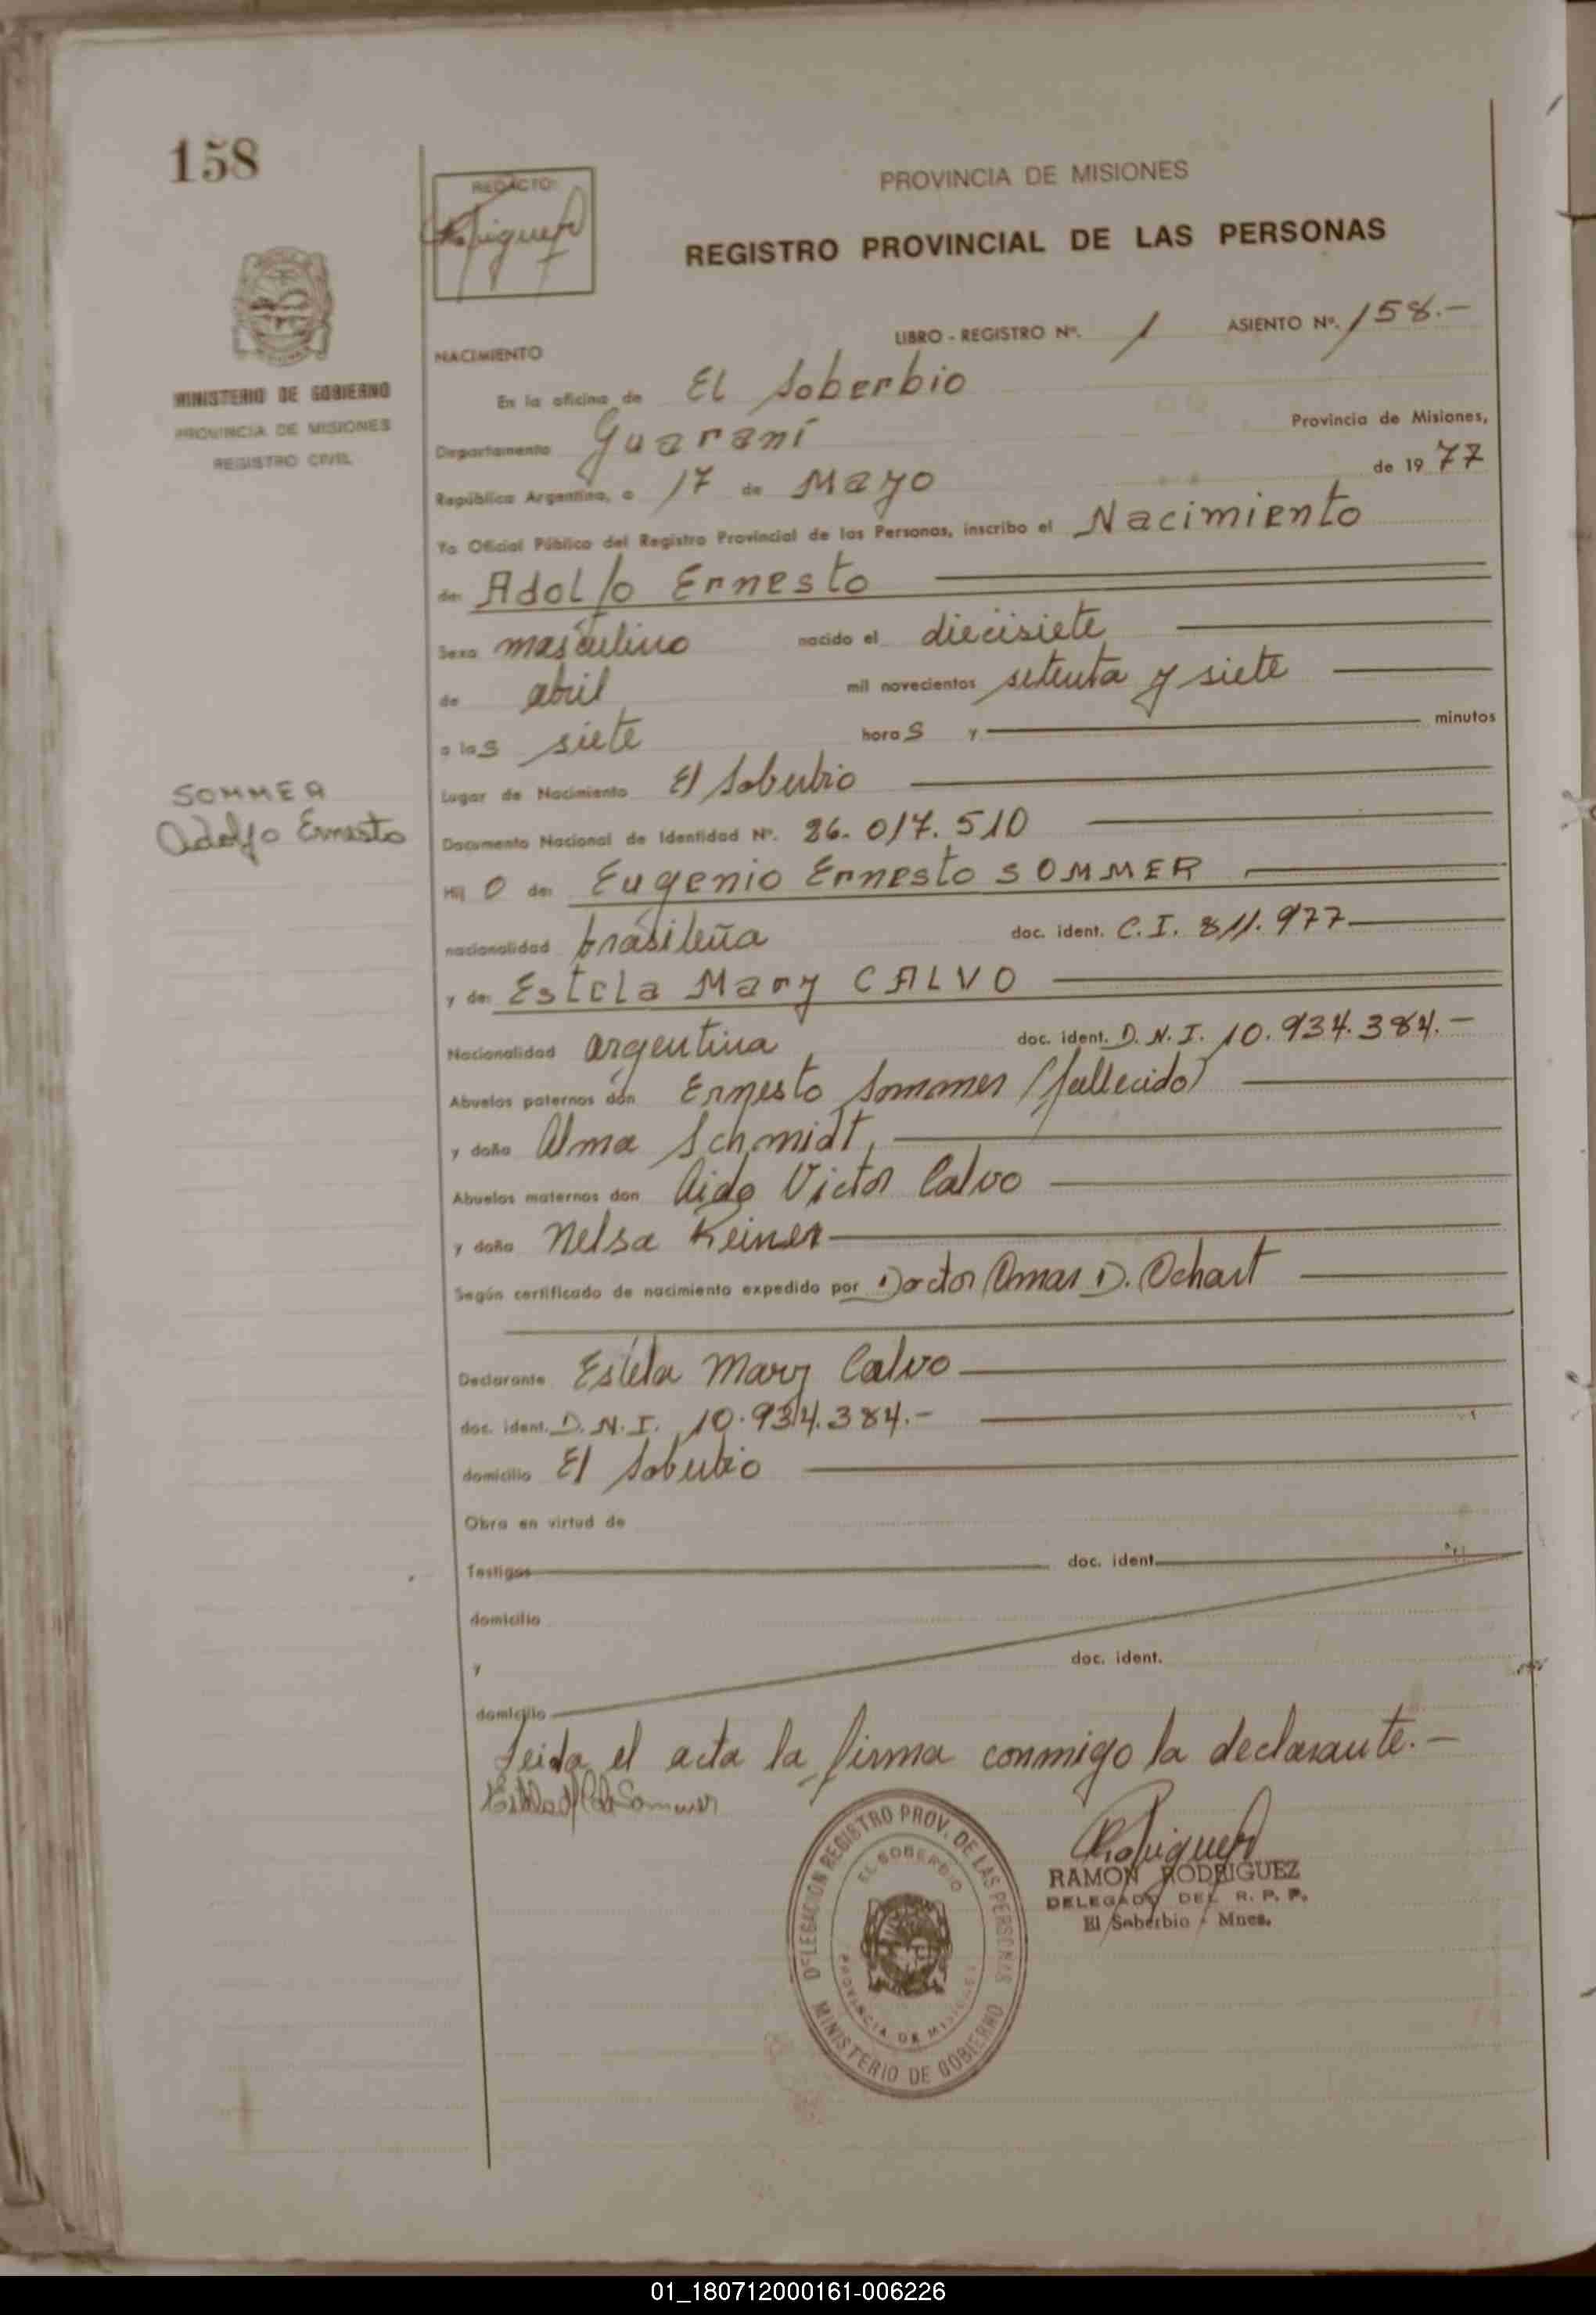 158
REDACTO:
PROVINCIA DE MISIONES
REGISTRO PROVINCIAL DE LAS PERSONAS
LIBRO - REGISTRO Nº. 1 ASIENTO Nº. 158.-
MINISTERIO DE GOBIERNO
PROVINCIA DE MISIONES
REGISTRO CIVIL
NACIMIENTO
En la oficina de El Soberbio
Departamento Guaraní Provincia de Misiones,
República Argentina, a 17 de Mayo de 1977
Yo Oficial Público del Registro Provincial de las Personas, inscribo el Nacimiento
de: Adolfo Ernesto
Sexo masculino nacido el diecisiete
de abril mil novecientos setenta y siete
a las siete horas y minutos
Lugar de Nacimiento El Soberbio
SOMMER
Adolfo Ernesto
Documento Nacional de Identidad Nº. 26.017.510
Hijo de: Eugenio Ernesto SOMMER
nacionalidad brasileña doc. ident. C.I. 811.977
y de: Estela Mary CALVO
Nacionalidad argentina doc. ident. D.N.I. 10.934.384.-
Abuelos paternos don Ernesto Sommer (fallecido)
y doña Alma Schmidt,
Abuelos maternos don Aido Victor Calvo
y doña Nelsa Reiner
Según certificado de nacimiento expedido por Doctor Omar D. Ochart
Declarante Estela Mary Calvo
doc. ident. D.N.I. 10.934.384.-
domicilio El Soberbio
Obra en virtud de
Testigos doc. ident.
domicilio
y doc. ident.
domicilio
Leida el acta la firma conmigo la declarante.-
de Sommer
DELEGACION REGISTRO PROV. DE LAS PERSONAS
EL SOBERBIO
PROVINCIA DE MISIONES
MINISTERIO DE GOBIERNO
RAMON RODRIGUEZ
DELEGADO DEL R. P. P.
El Soberbio - Mnes.
01_180712000161-006226